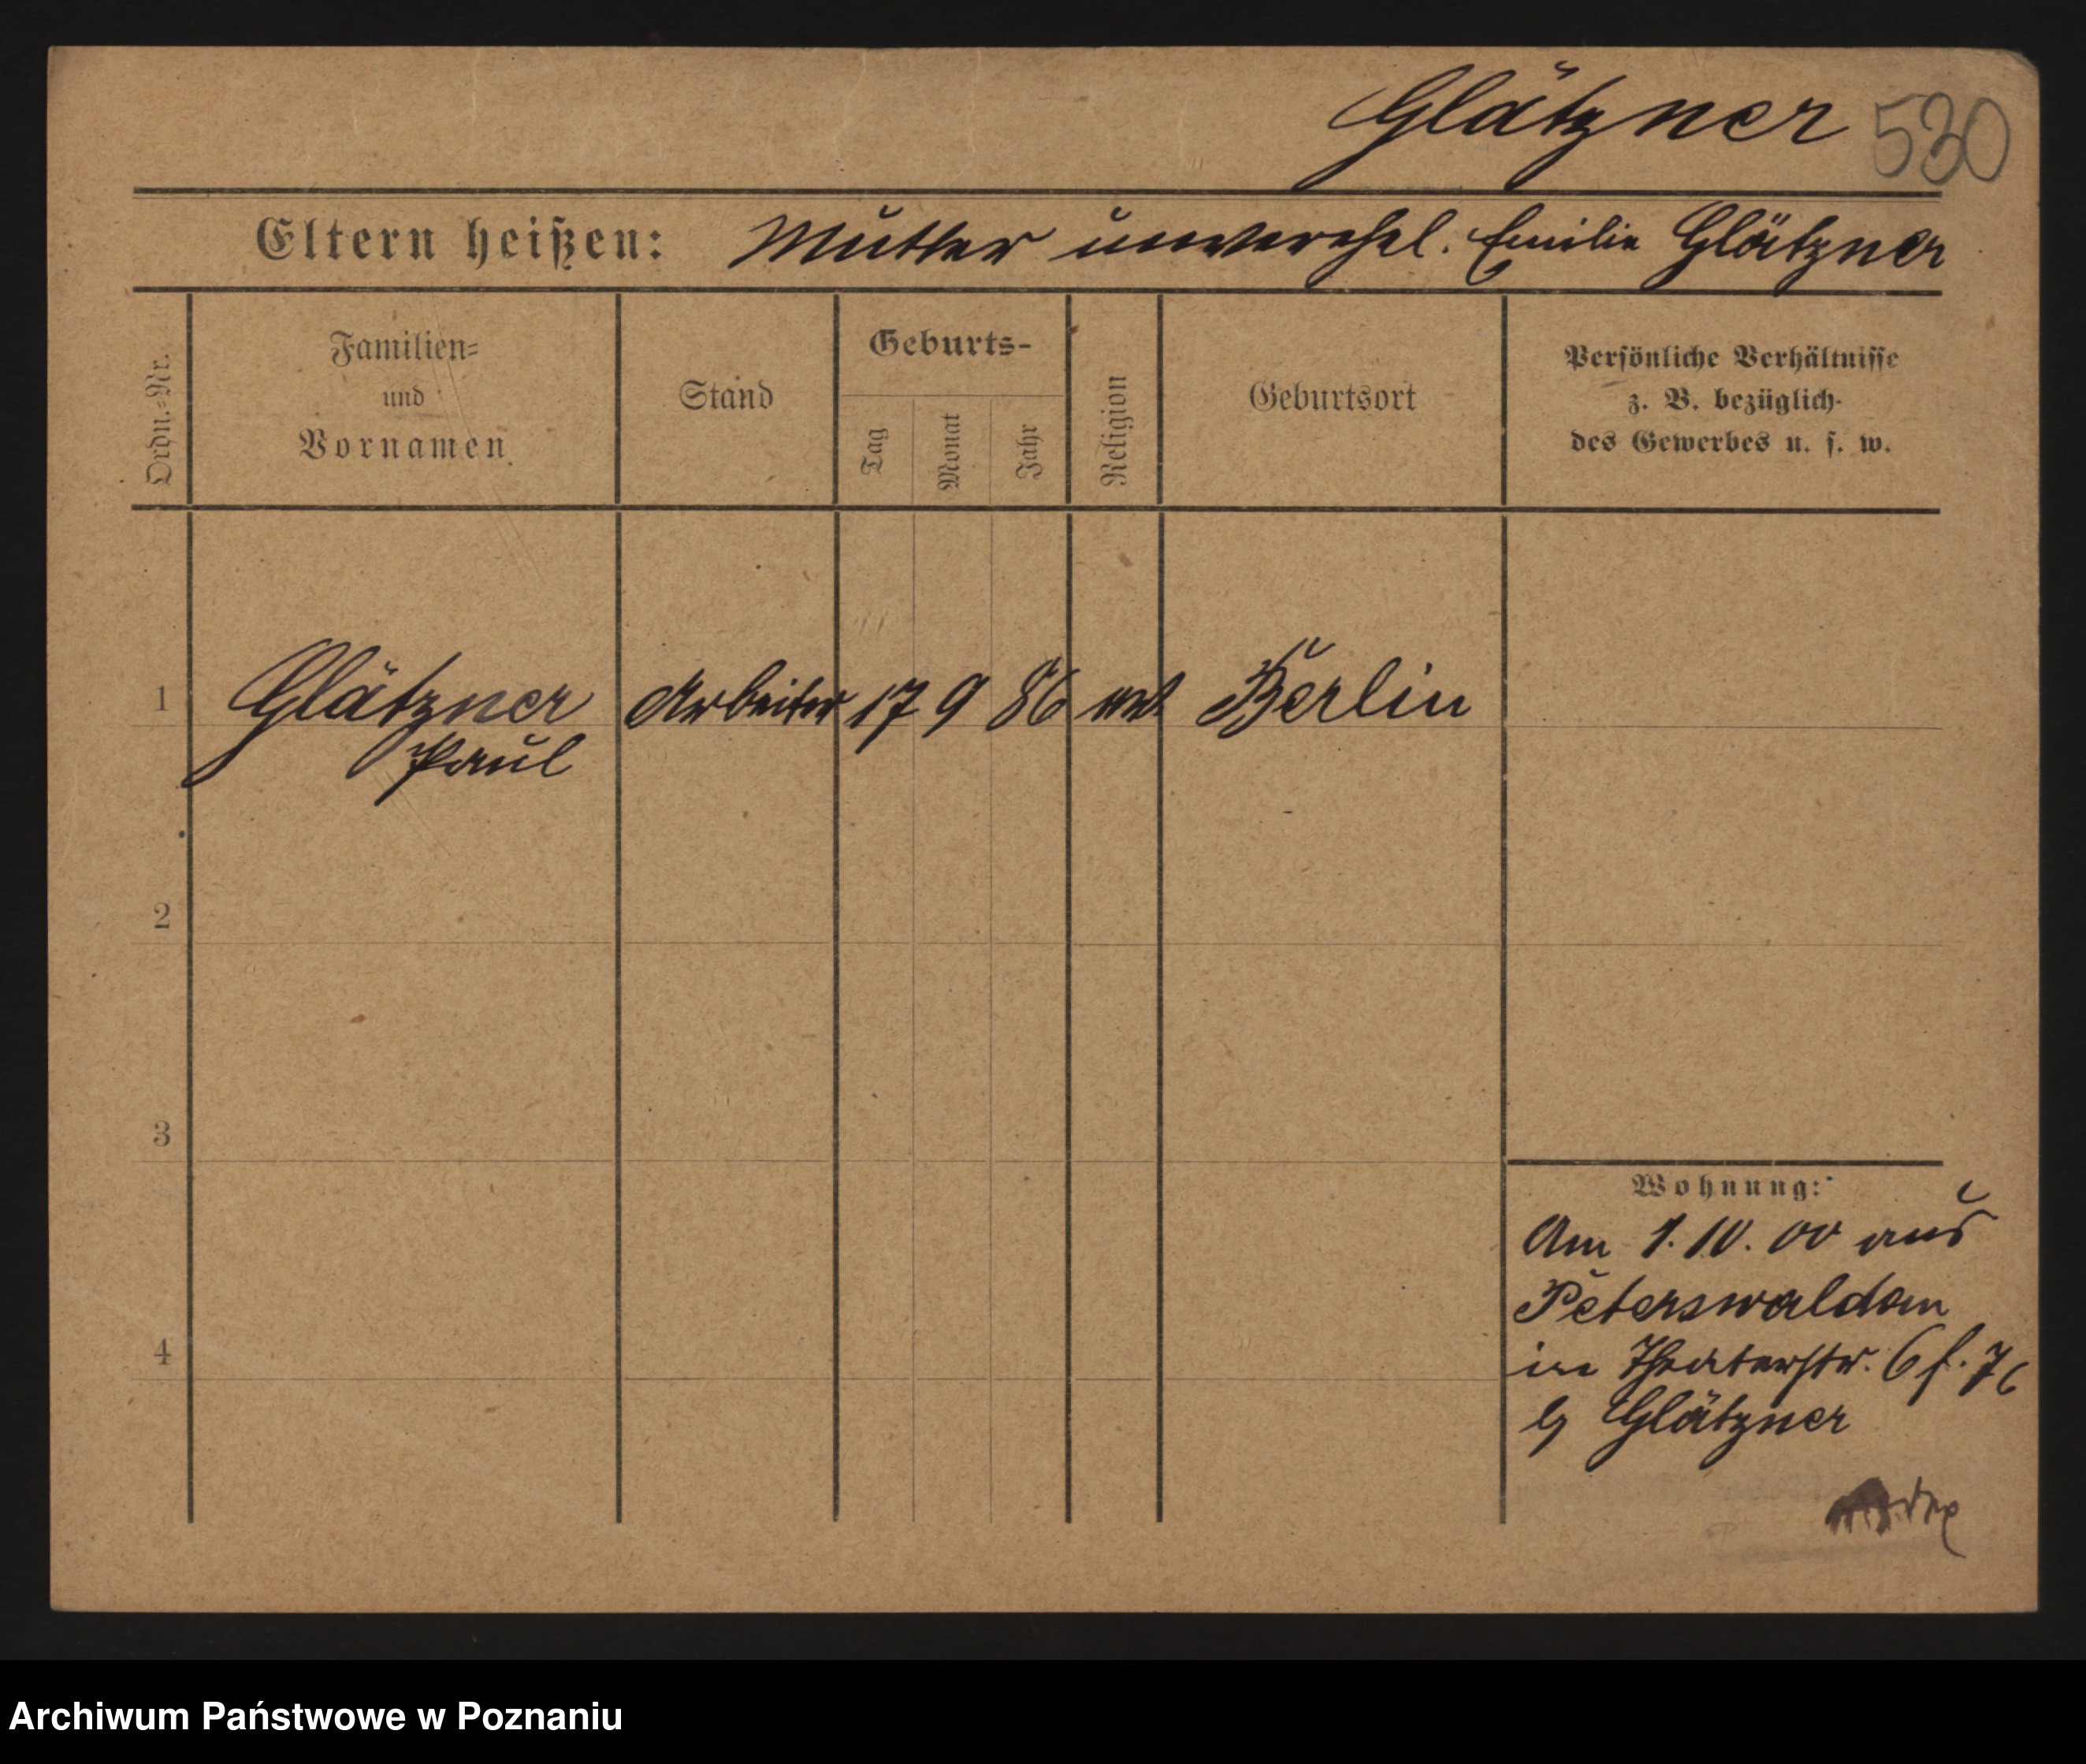 Glätzner 530
Eltern heißen: Mutter unverehel. Emilie Glätzner
Ordn.=Nr.
Familien=
und
Vornamen
Stand
Geburts-
Tag
Monat
Jahr
Religion
Geburtsort
Persönliche Verhältnisse
z. B. bezüglich
des Gewerbes u. s. w.
1 Glätzner Arbeiter 17 9 86 Berlin
Paul
2
3
4
Wohnung:
Am 1.10.00 aus
Peterswaldau
in Theaterstr. 6
Glätzner
Archiwum Państwowe w Poznaniu